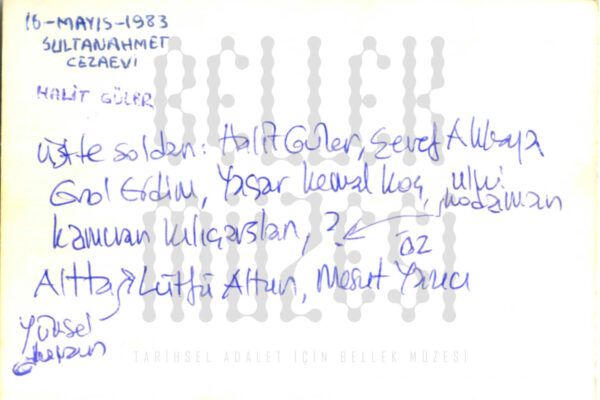 16-MAYIS-1983
SULTANAHMET
CEZAEVİ
HALİT GÜLER
üstte soldan: Halit Güler, Şeref Akkaya
Erol Erdim, Yaşar Kemal Koç, ulvi
kodaman
Kamuran Kılıçarslan, ?
öz
Altta Lütfü Altun, Mesut Yazıcı
Yüksel
BELLEK
MÜZESİ
TARİHSEL ADALET İÇİN BELLEK MÜZESİ